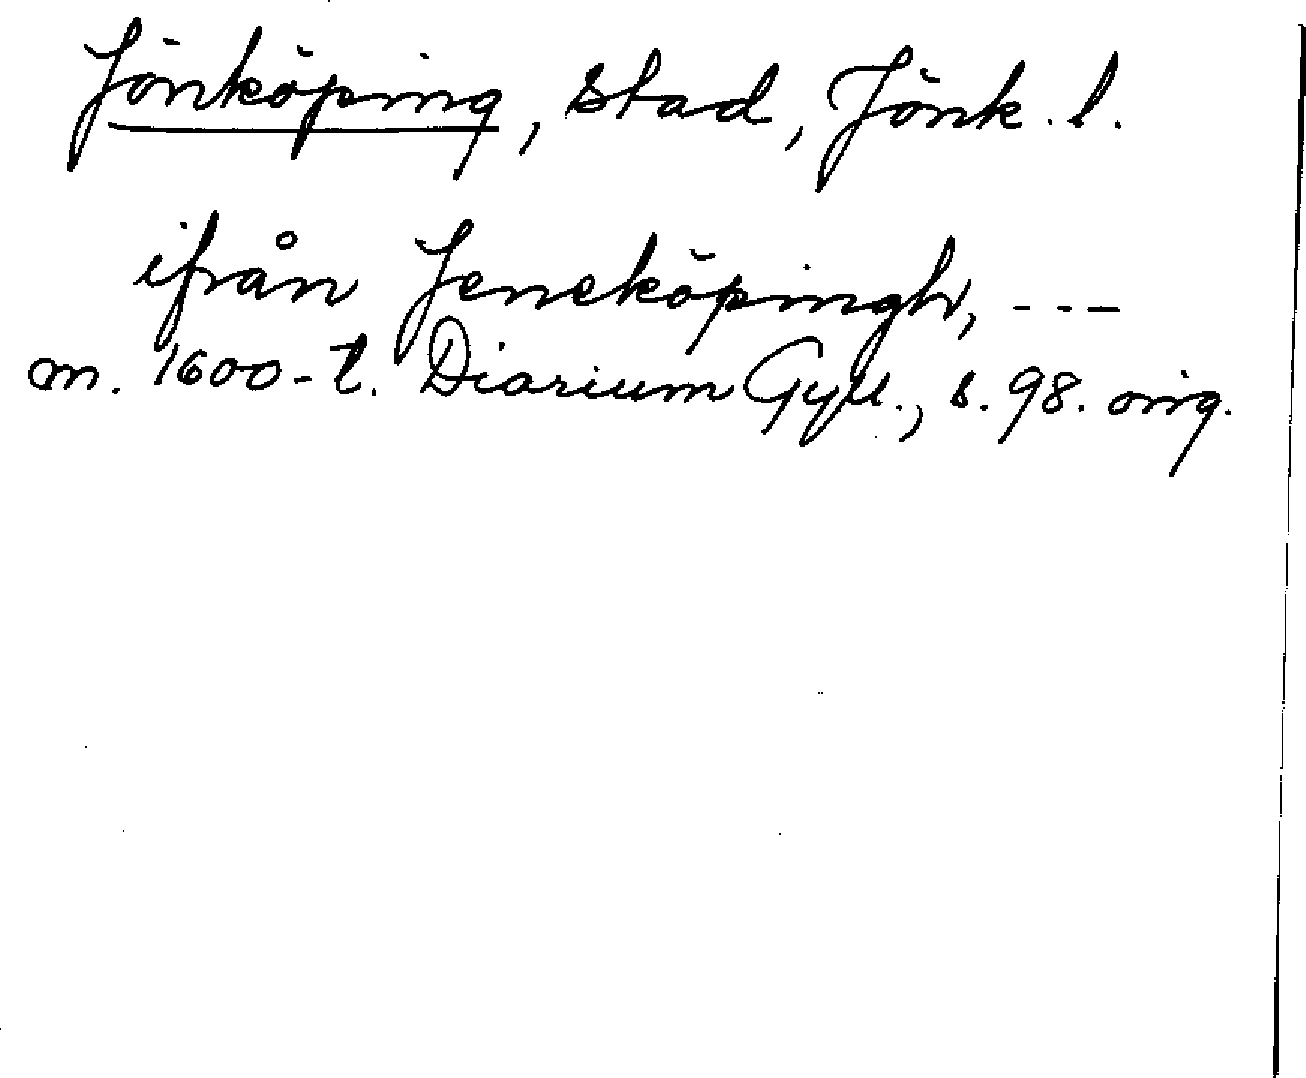 Jönköping, stad, Jönk. l.
ifrån Jeneköpingh, ---
m. 1600-t. Diarium Gyll., s. 98. orig.